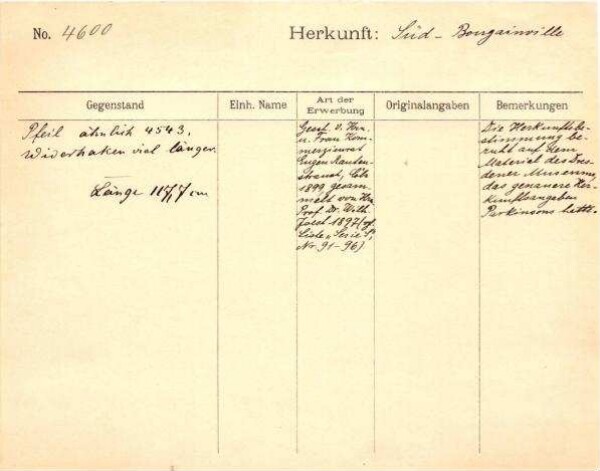 No. 4600
Herkunft: Süd-Bougainville
Gegenstand
Einh. Name
Art der Erwerbung
Originalangaben
Bemerkungen
Pfeil ähnlich 4543,
Widerhaken viel länger.
Länge 117,7 cm
Gesch. v. Hrn.
u. Frau Kom-
merzienrat
Eugen Rauten-
strauch, Cöln
1899 gesam-
melt von Hrn.
Prof. Dr. Wilh.
Joest 1897 (vgl.
Liste, Serie
Nr. 91-96)
Die Herkunftsbe-
stimmung be-
ruht auf dem
Material des Dres-
dener Museums,
das genauere Her-
kunftsangaben
Parkinsons hatte.